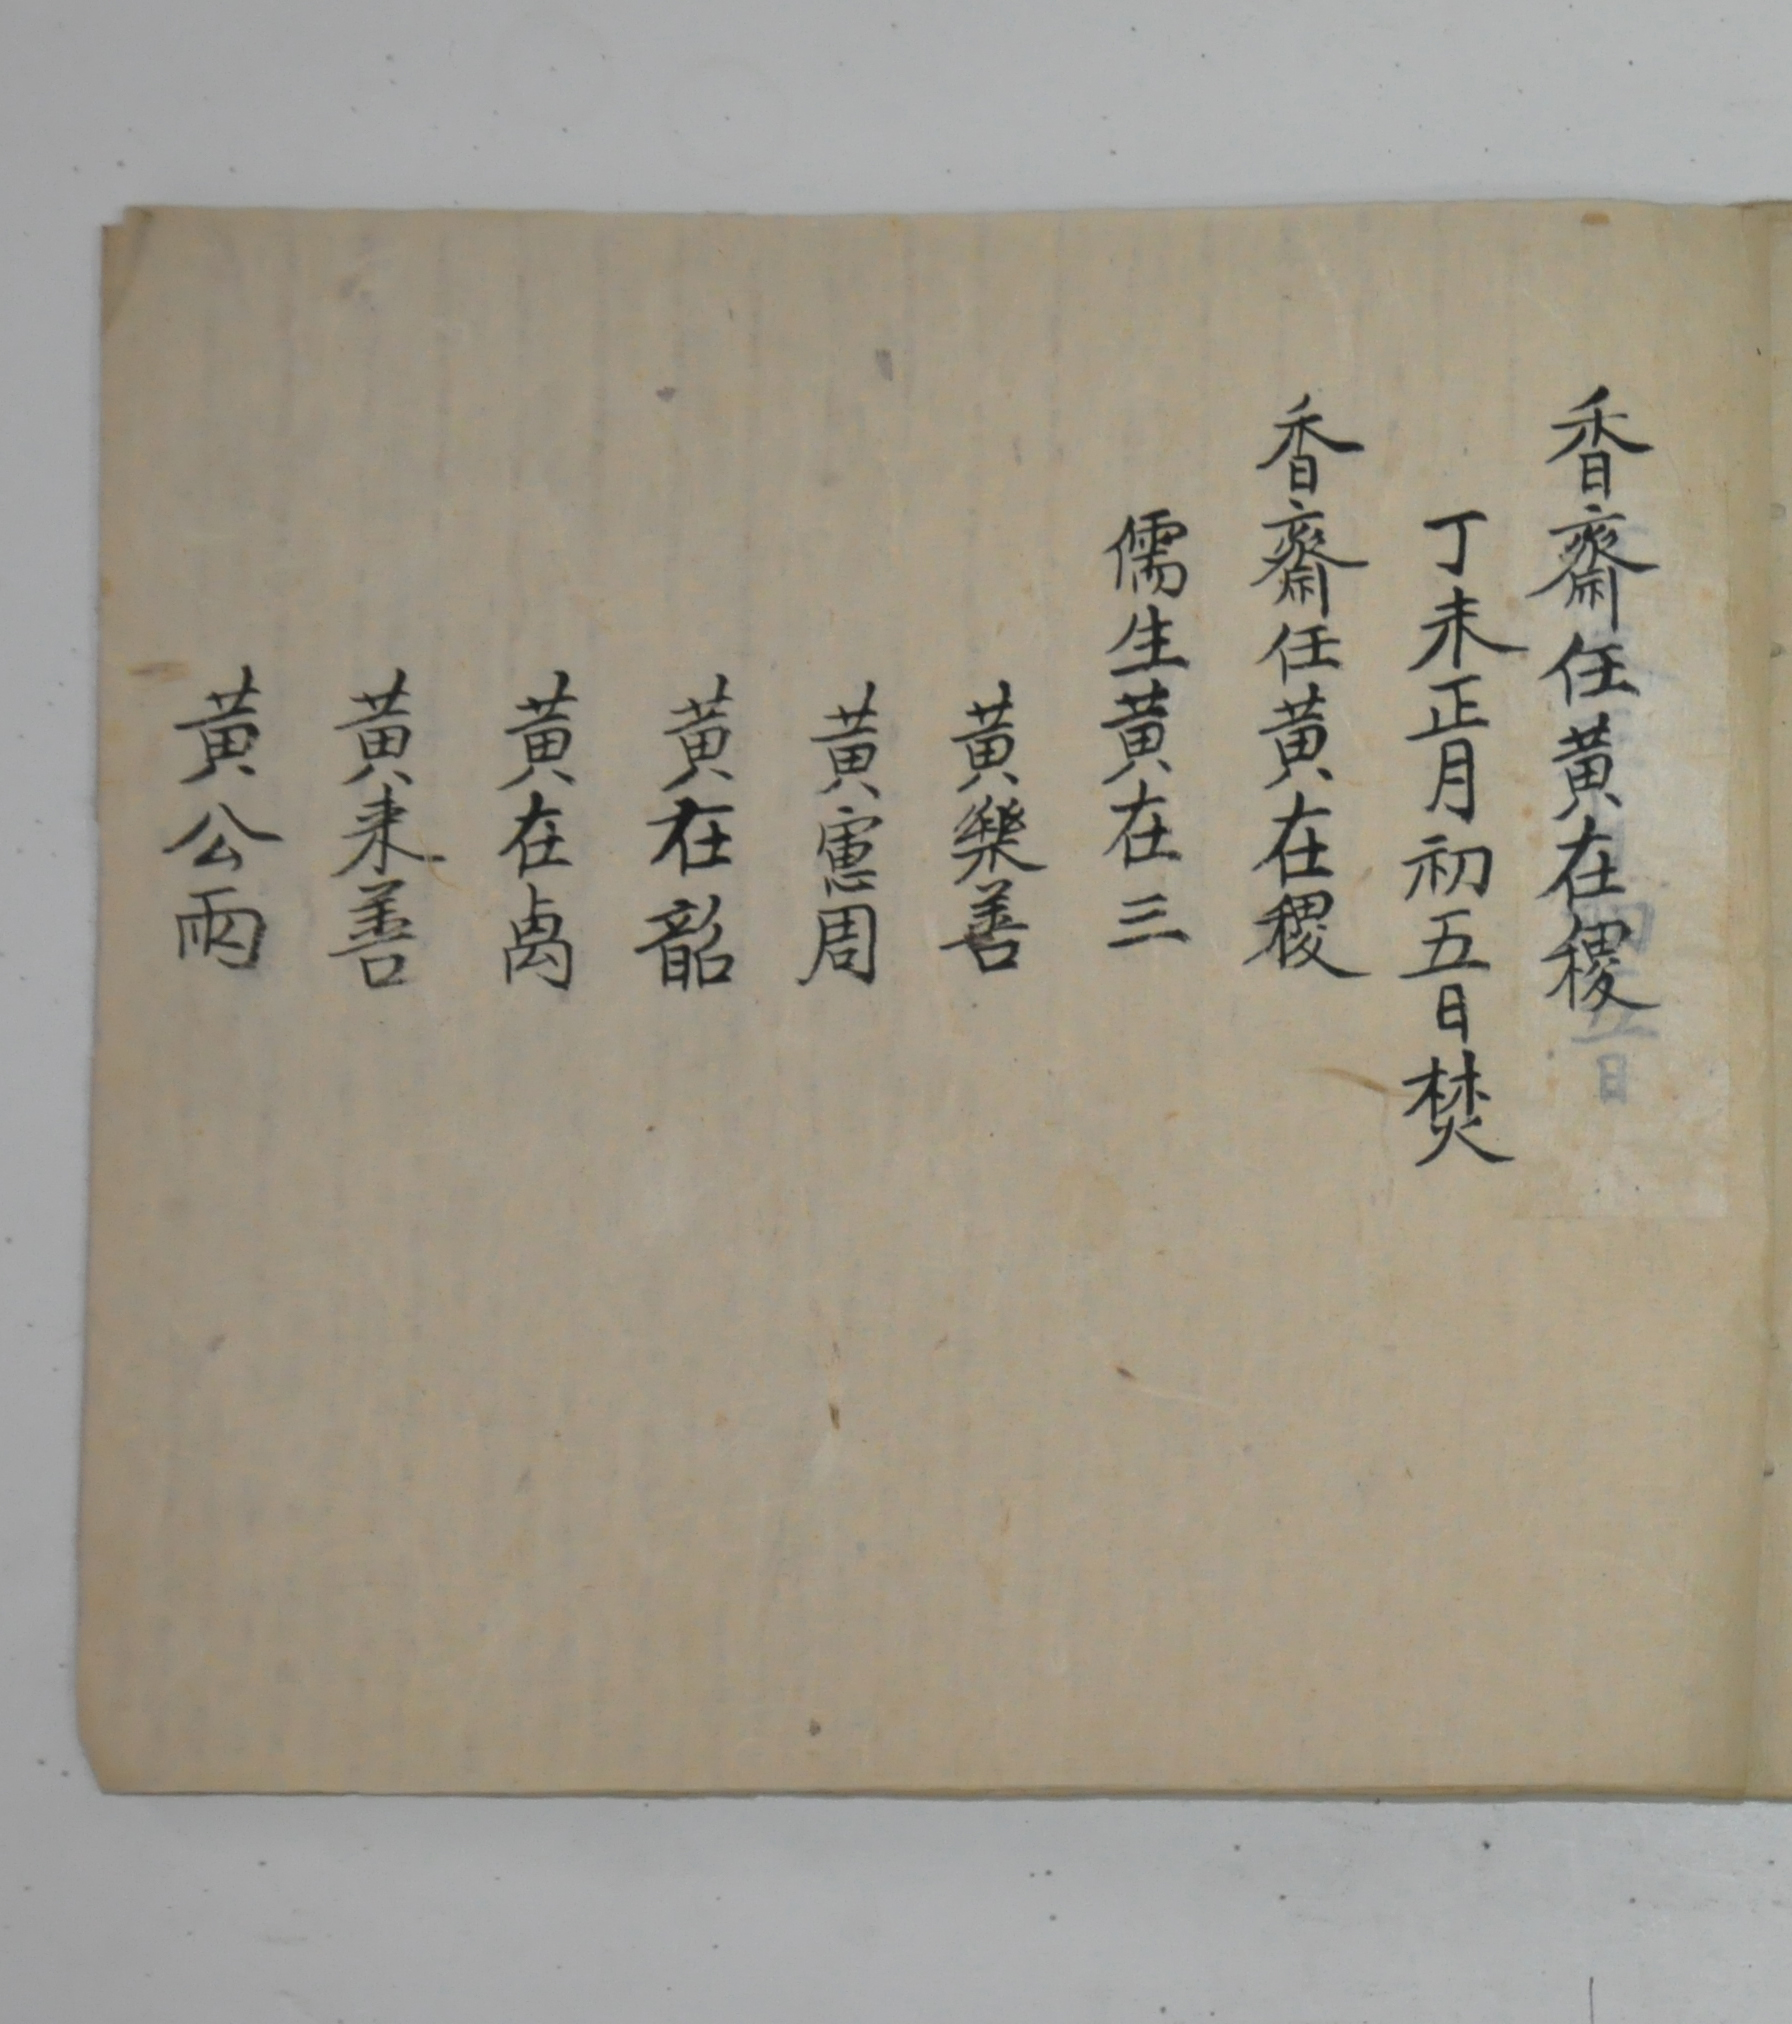 香齋任黃在稷
丁未正月初五日焚
香齋任黃在稷
儒生黃在三
黃樂善
黃憲周
黃在韶
黃在卨
黃来善
黃公兩